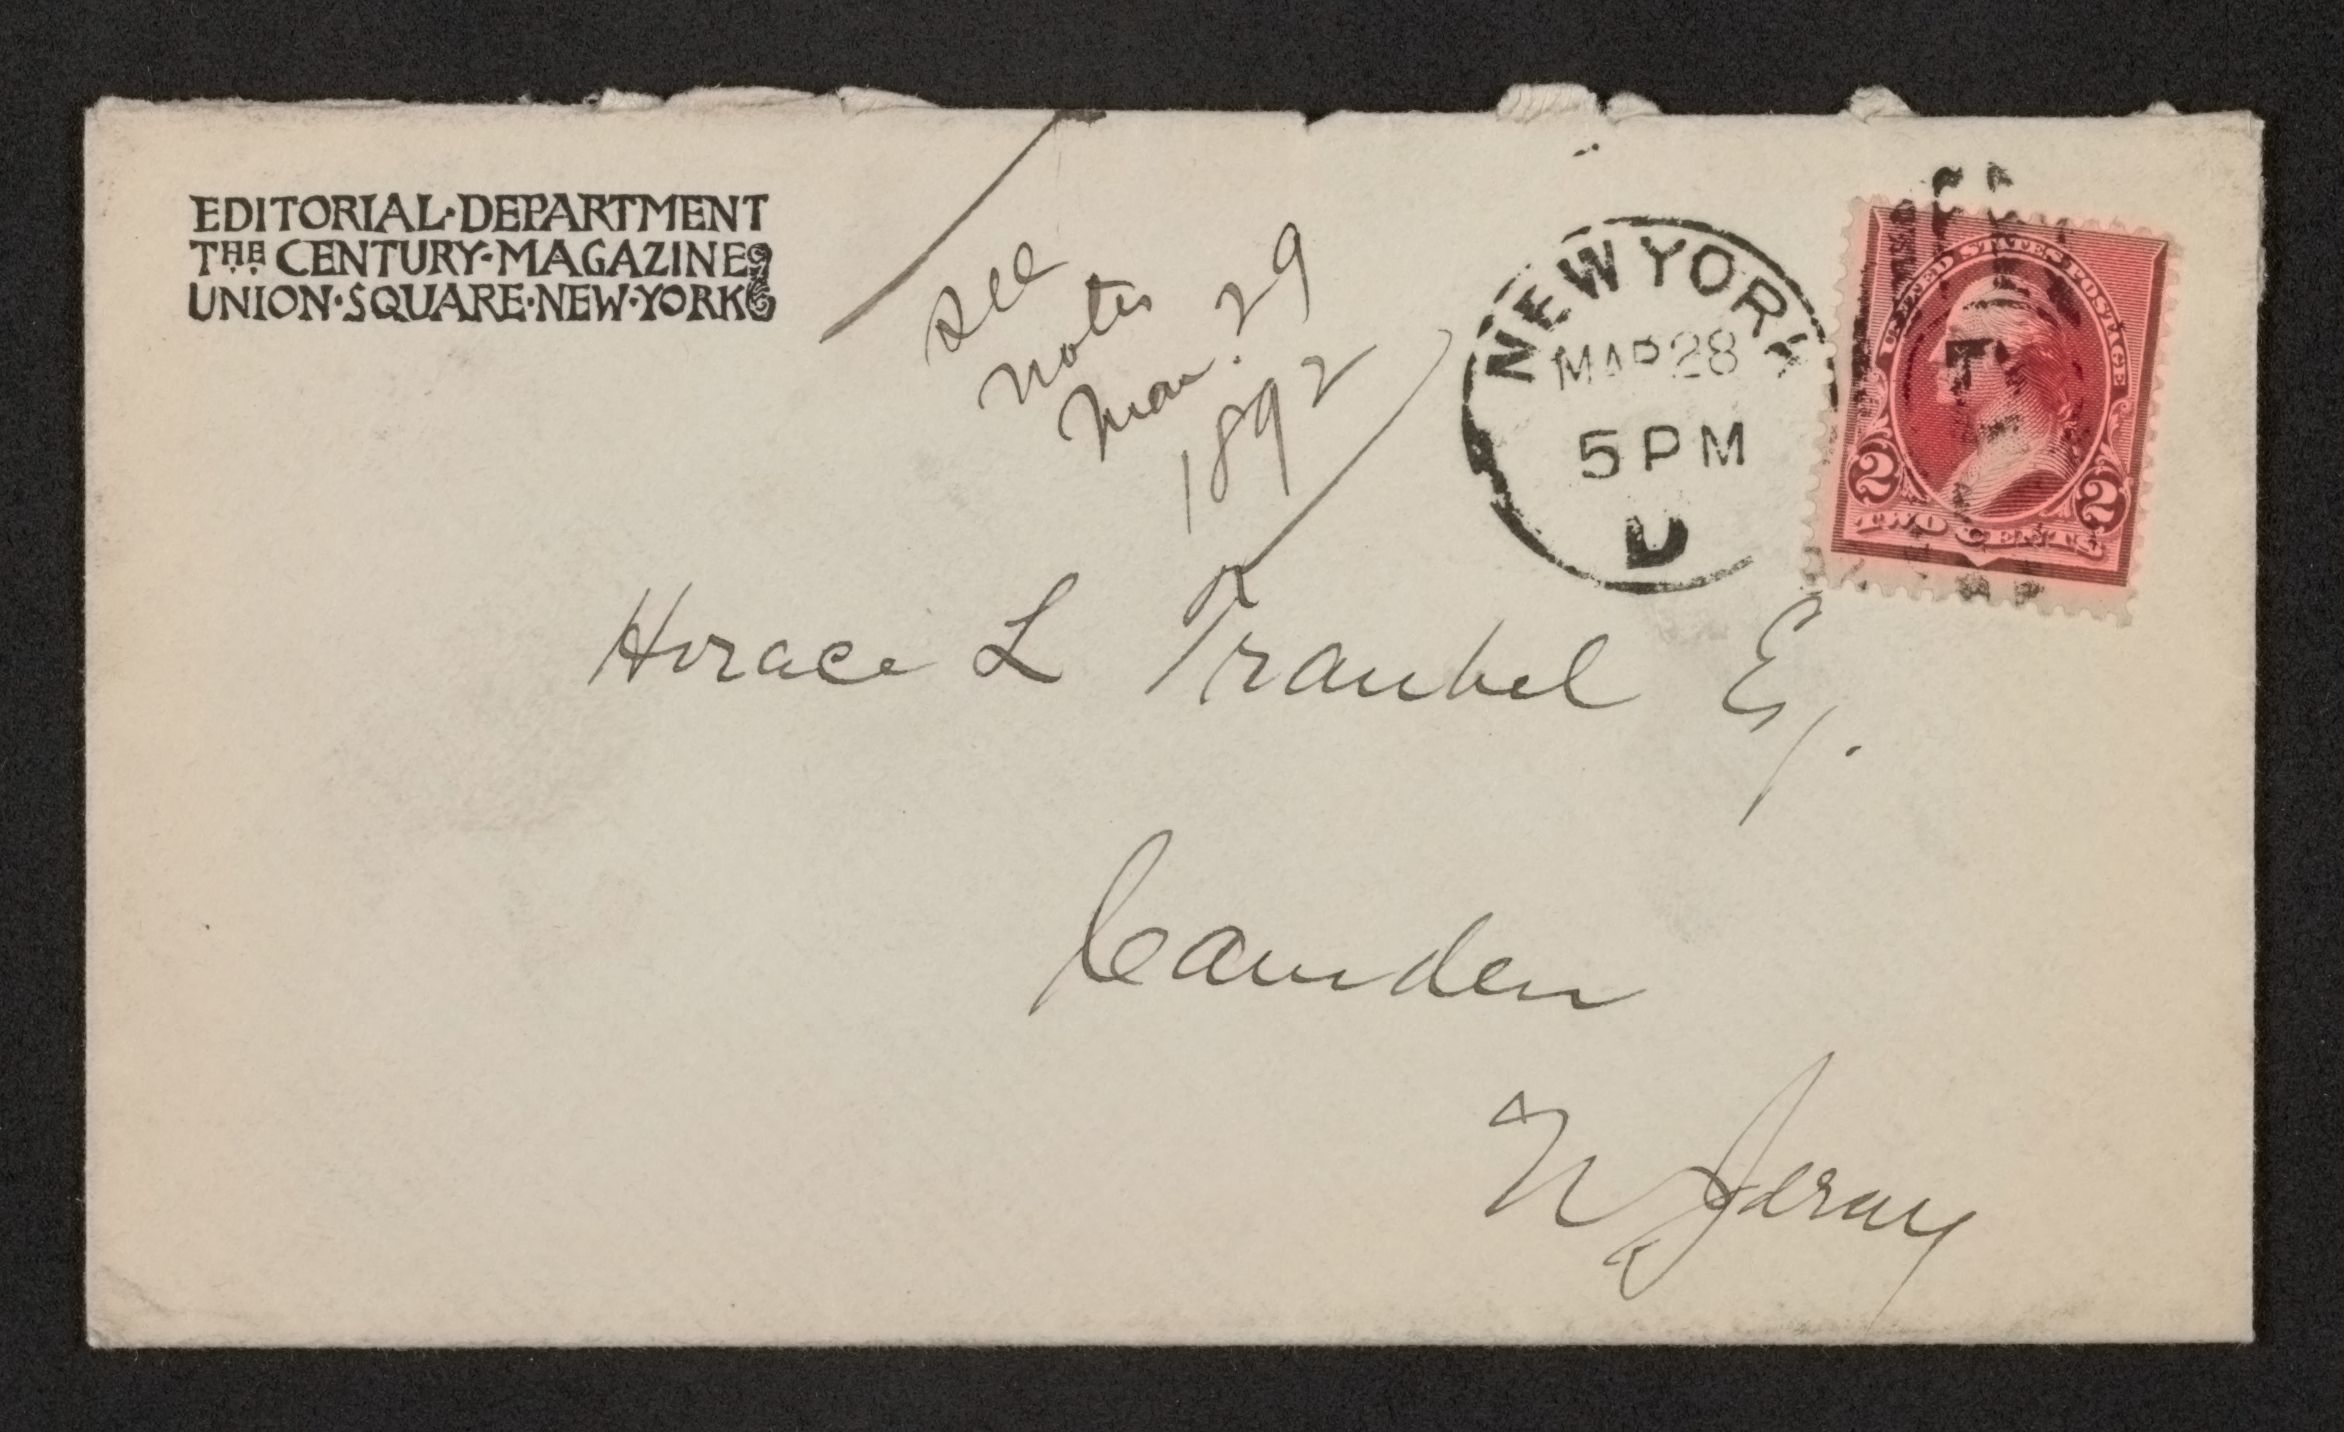 EDITORIAL·DEPARTMENT
THE CENTURY·MAGAZINE
UNION·SQUARE·NEW·YORK
see
notes
Mar. 29
1892
NEW YORK
MAR 28
5 PM
D
UNITED STATES POSTAGE
2 2
TWO CENTS
Horace L Traubel Esq.
Camden
N Jersey